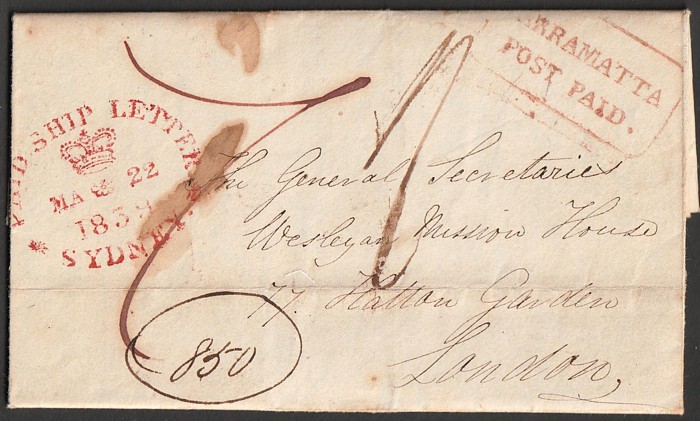 PAID SHIP LETTER
MA 22
1839
SYDNEY
PARRAMATTA
POST PAID.
The General Secretaries
Wesleyan Mission House
77. Hatton Garden
London,
850